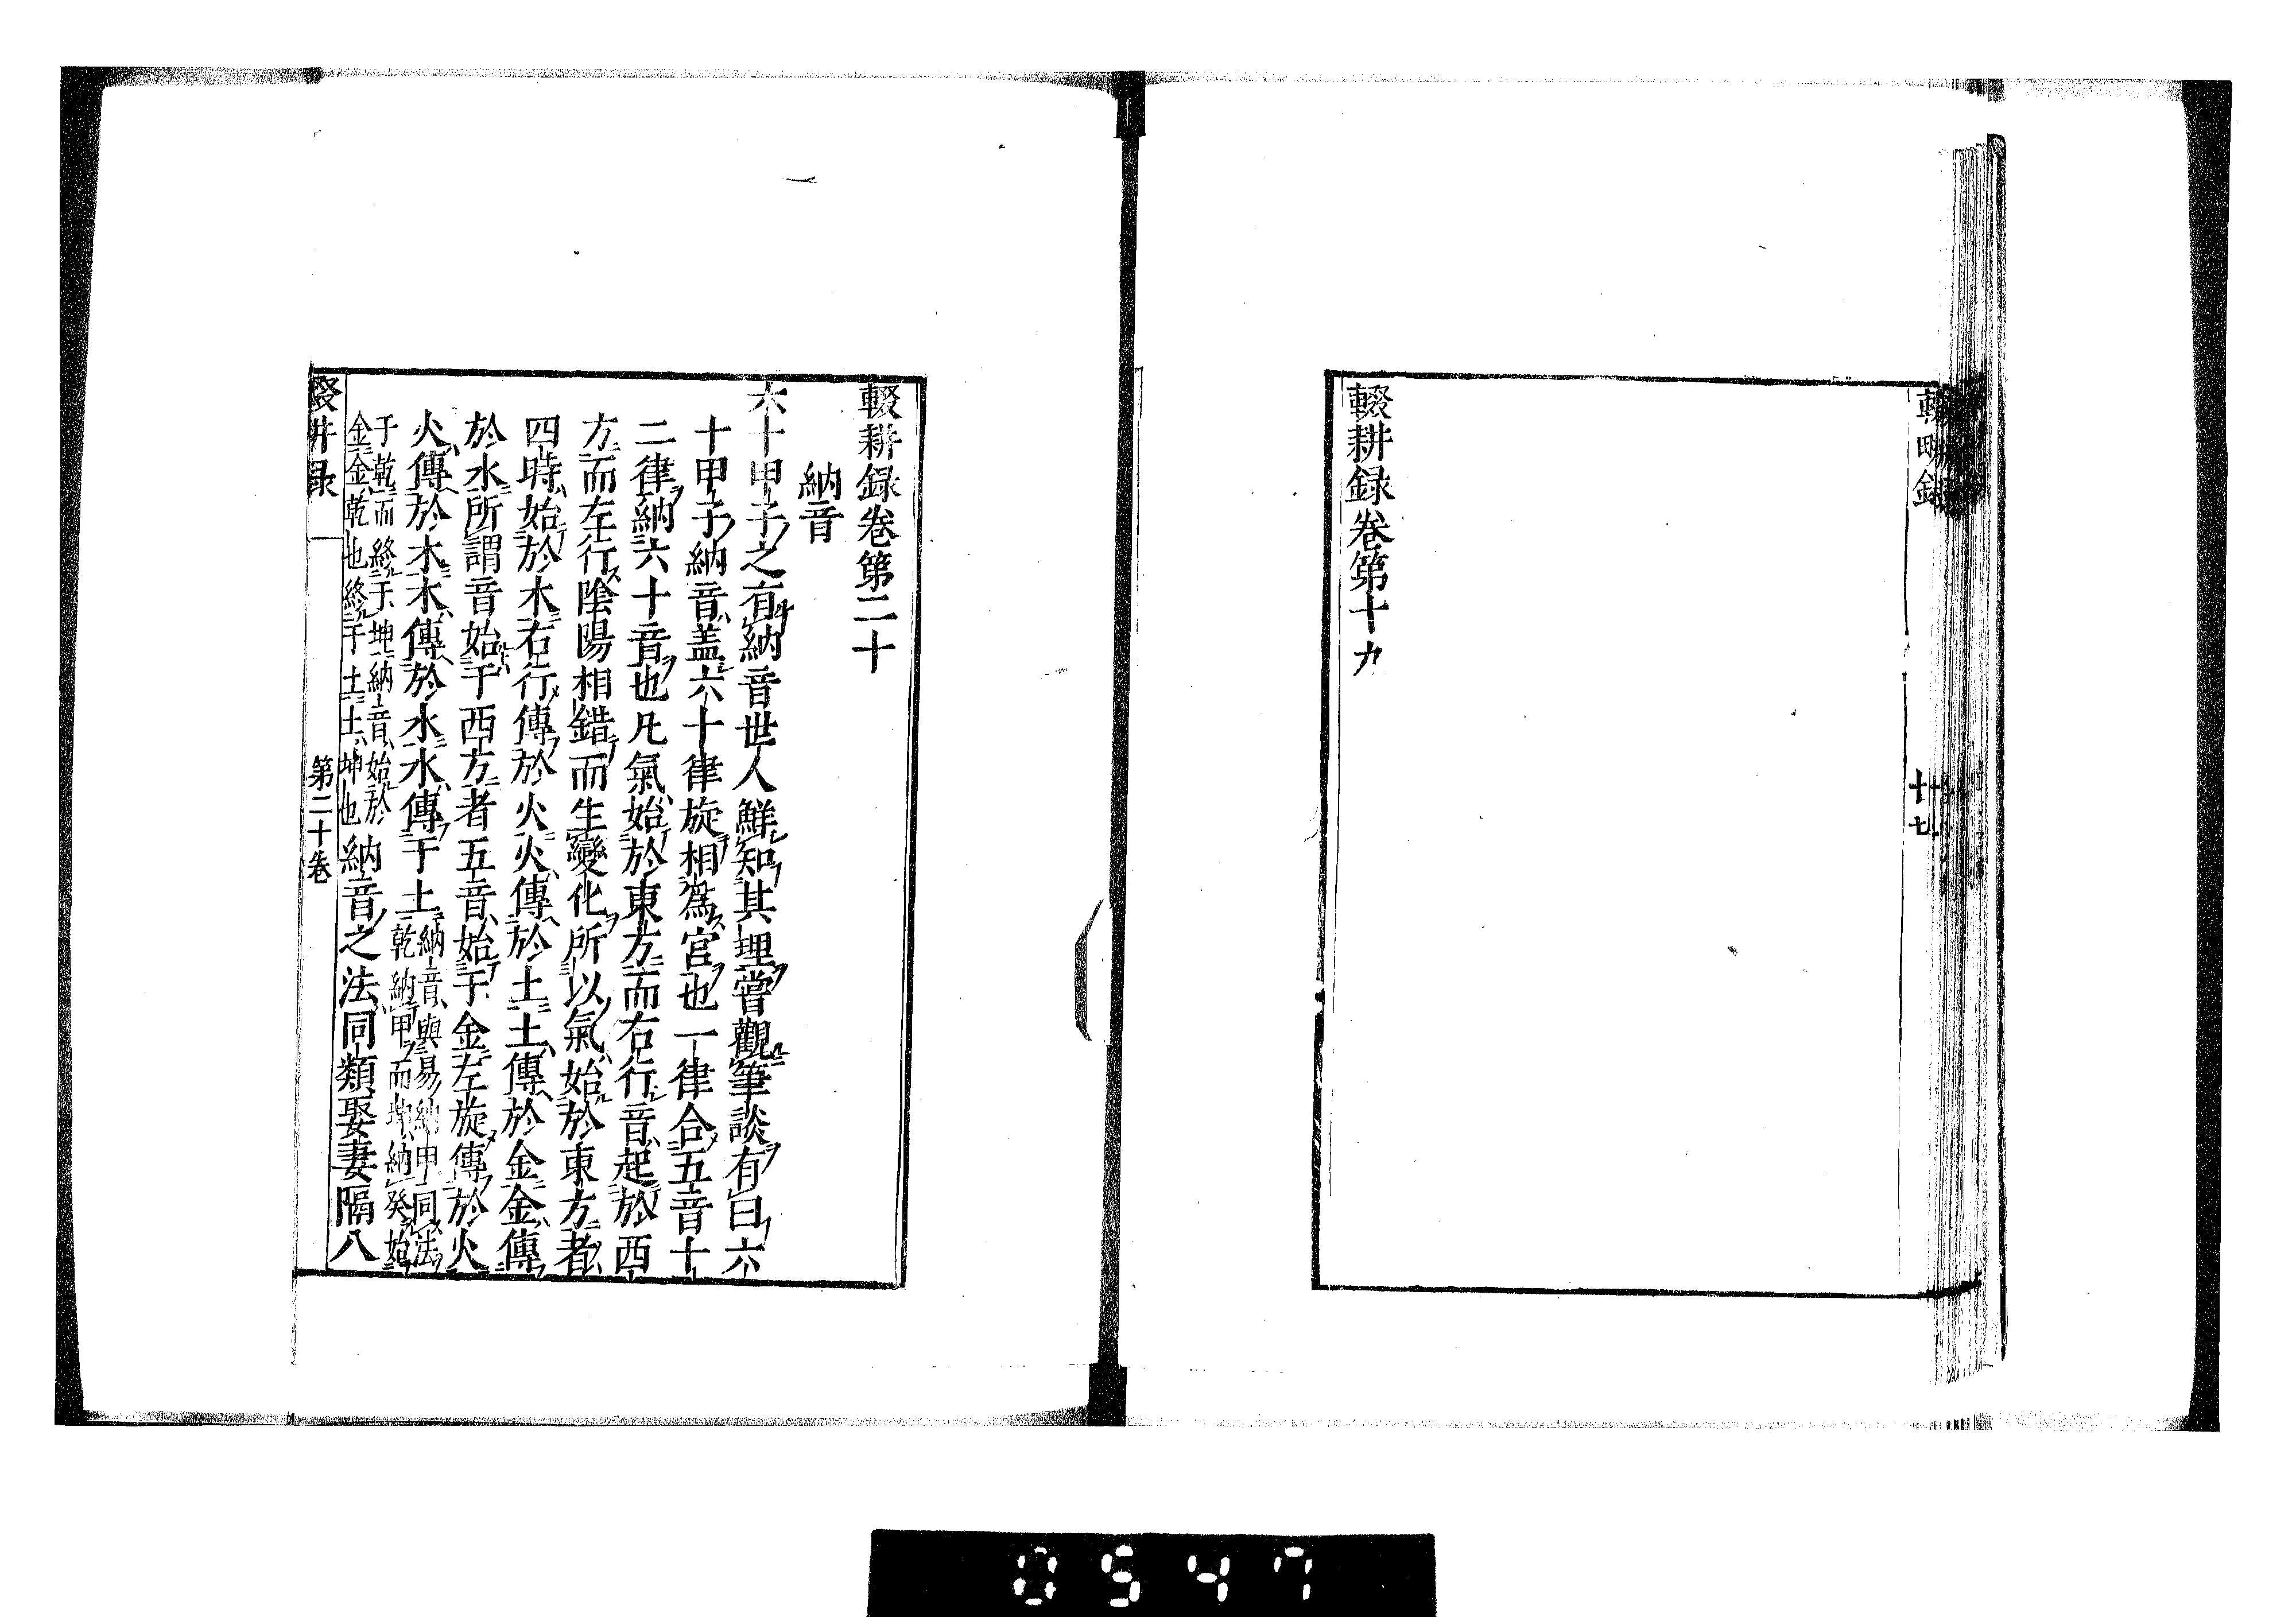 輟耕録
十七
輟耕録卷第十九
輟耕録卷第二十
納音
六十甲子之有納音世人鮮知其理嘗觀筆談有曰六
十甲子納音盖六十律旋相爲宮也一律合五音十
二律納六十音也凡氣始於東方而右行音起於西
方而左行陰陽相錯而生變化所以氣始於東方者
四時始於木右行傳於火火傳於土土傳於金金傳
於水所謂音始于西方者五音始于金左旋傳於火
火傳於木木傳於水水傳于土納音與易納甲同法乾納甲而坤納癸始
于乾而終于坤納音始於金金乾也終于土土坤也納音之法同類娶妻隔八
輟耕録
第二十卷
0547